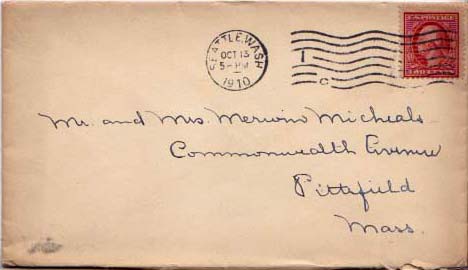 SEATTLE, WASH.
OCT 13
5-PM
1910
1
C
U.S. POSTAGE
Mr. and Mrs. Merwin Micheals
Commonwealth Avenue
Pittsfield
Mass.